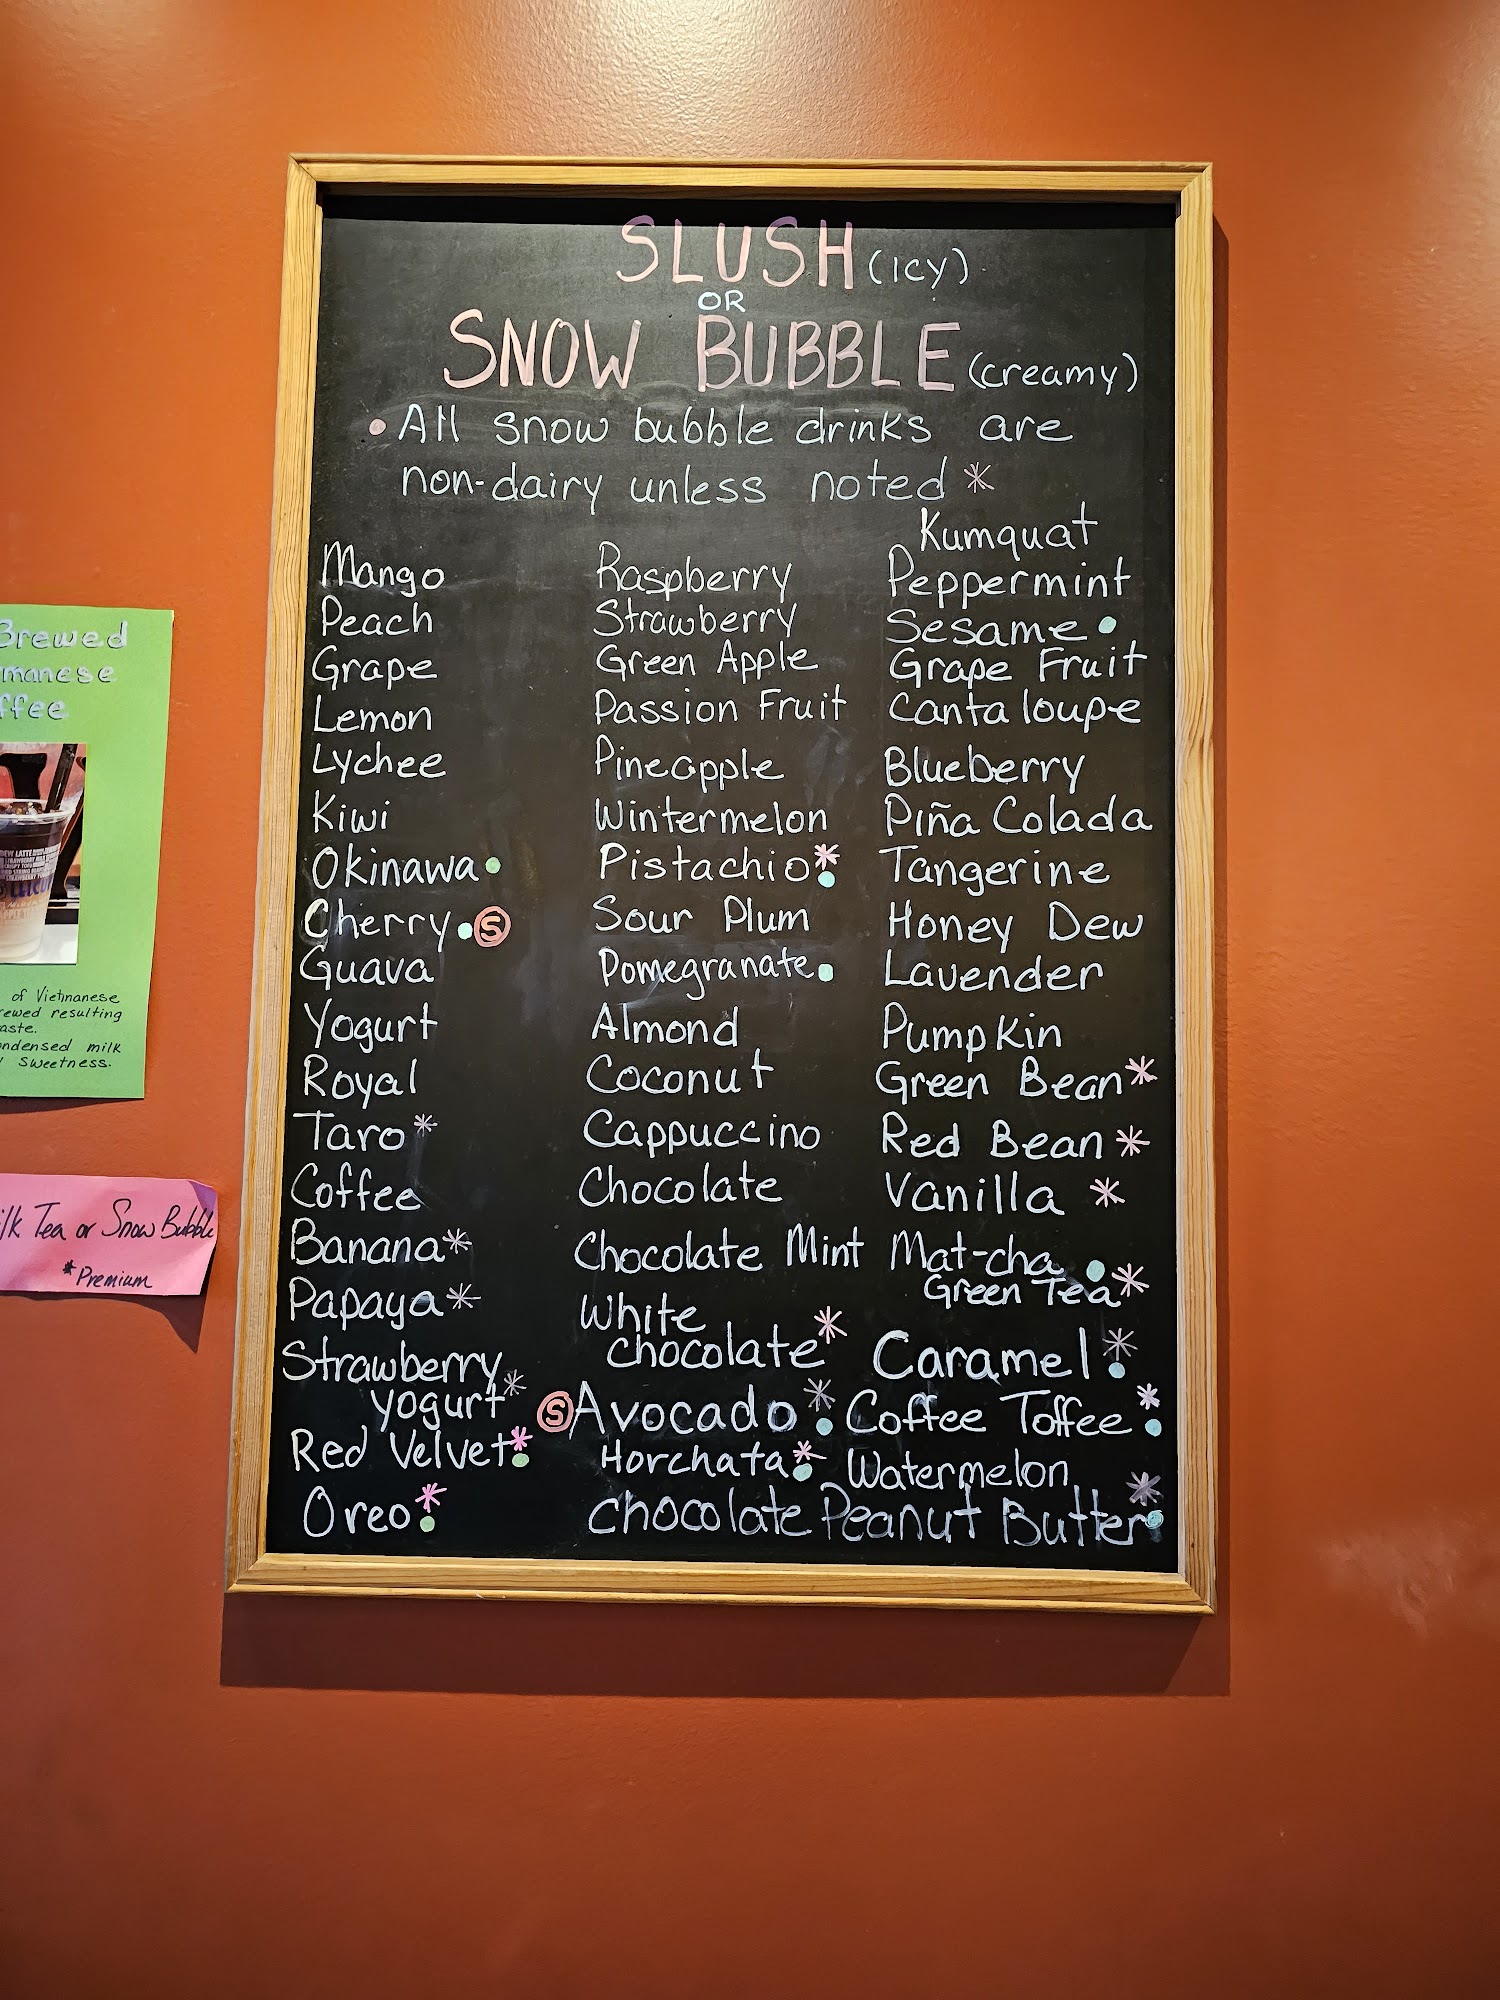 SLUSH (ICY)
OR
SNOW BUBBLE (creamy)
• All snow bubble drinks are
non-dairy unless noted *
Mango
Peach
Grape
Lemon
Lychee
Kiwi
Okinawa •
Cherry • Ⓢ
Guava
Yogurt
Royal
Taro *
Coffee
Banana *
Papaya *
Strawberry
yogurt *
Red Velvet * •
Oreo * •
Raspberry
Strawberry
Green Apple
Passion Fruit
Pineapple
Wintermelon
Pistachio * •
Sour Plum
Pomegranate •
Almond
Coconut
Cappuccino
Chocolate
Chocolate Mint
White
chocolate *
Ⓢ Avocado * •
Horchata * •
Chocolate Peanut Butter * •
Kumquat
Peppermint
Sesame •
Grape Fruit
Cantaloupe
Blueberry
Piña Colada
Tangerine
Honey Dew
Lavender
Pumpkin
Green Bean *
Red Bean *
Vanilla *
Mat-cha •
Green Tea *
Caramel * •
Coffee Toffee * •
Watermelon
Brewed
ffee
of Vietnamese
rewed resulting
aste.
ndensed milk
sweetness.
lk Tea or Snow Bubble
*Premium